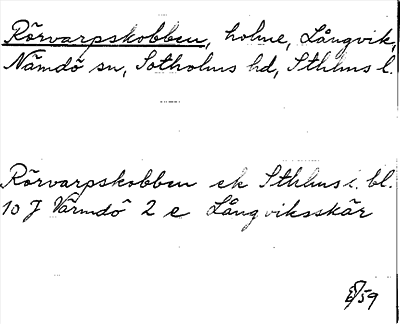 Rörvarpskobben, holme, Långvik,
Nämdö sn, Sotholms hd, Sthlms l.
Rörvarpskobben ek Sthlms l. bl.
10 J Värmdö 2 e Långviksskär
/59